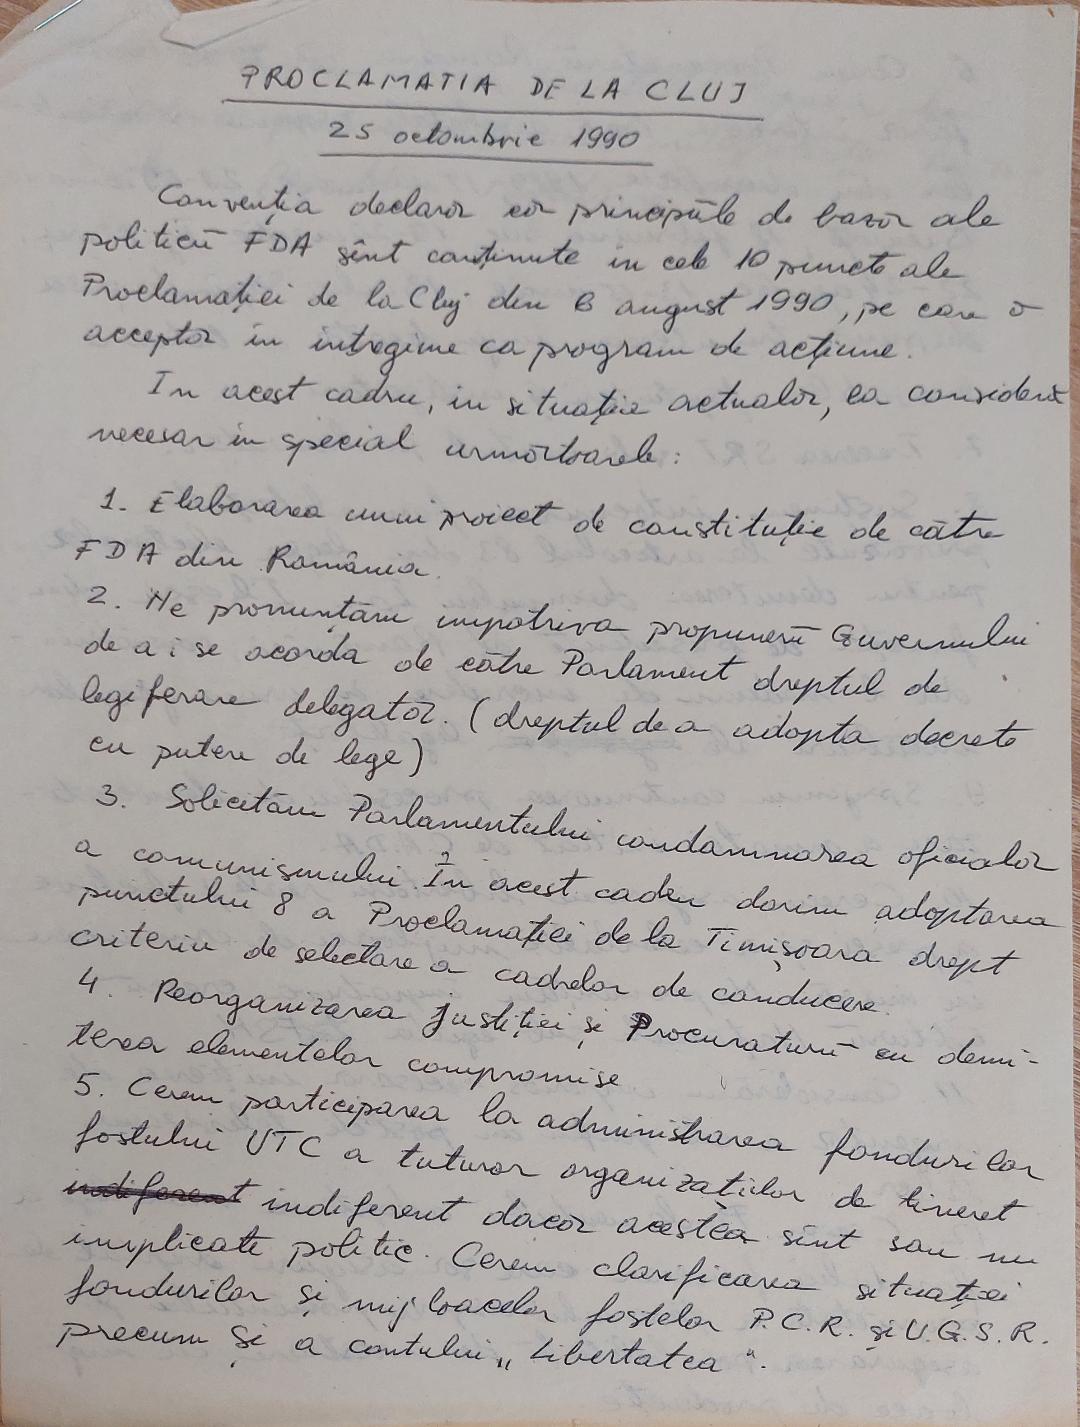 PROCLAMATIA DE LA CLUJ
25 octombrie 1990
Convenția declară că principiile de bază ale
politicii FDA sînt conținute in cele 10 puncte ale
Proclamației de la Cluj din 6 august 1990, pe care o
acceptă in intregime ca program de acțiune.
In acest cadru, in situația actuală, ea consideră
necesar in special următoarele:
1. Elaborarea unui proiect de constituție de către
FDA din România.
2. Ne pronunțăm impotriva propunerii Guvernului
de a i se acorda de către Parlament dreptul de
legiferare delegată. (dreptul de a adopta decrete
cu putere de lege)
3. Solicităm Parlamentului condamnarea oficială
a comunismului. În acest cadru dorim adoptarea
punctului 8 a Proclamației de la Timișoara drept
criteriu de selectare a cadrelor de conducere.
4. Reorganizarea justiției și Procuraturii cu demi-
terea elementelor compromise
5. Cerem participarea la administrarea fondurilor
fostului UTC a tuturor organizațiilor de tineret
indiferent indiferent dacă acestea sînt sau nu
implicate politic. Cerem clarificarea situației
fondurilor și mijloacelor fostelor P.C.R. și U.G.S.R.
precum și a contului „Libertatea".